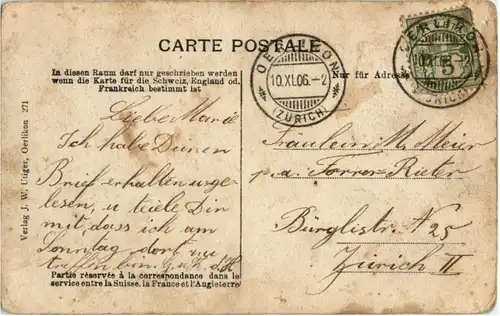 CARTE POSTALE
In diesen Raum darf nur geschrieben werden
wenn die Karte für die Schweiz, England od.
Frankreich bestimmt ist
Nur für Adresse
OERLIKON
10.XI.06.–2
(ZÜRICH)
OERLIKON
10.XI.06.–2
(ZÜRICH)
5
Verlag J. W. Utiger, Oerlikon 271
Liebe Marie
Ich habe Deinen
Brief erhalten u. gele-
sen, u teile Dir
mit, dass ich am
Sonntag dort zu
treffen bin. G. u. K.
Partie réservée à la correspondance dans le
service entre la Suisse, la France et l'Angleterre
Fräulein M. Meier
p.a. Forrer-Rieter
Bürglistr. N 25
Zürich II